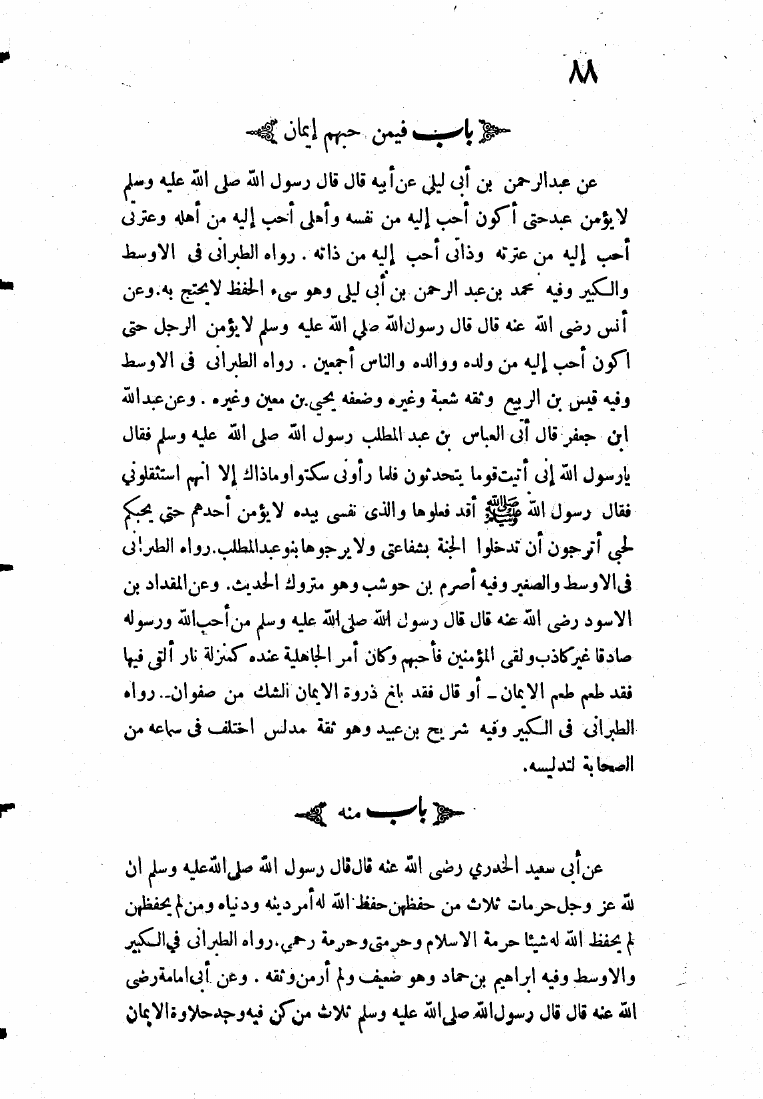 ٨٨
باب فيمن حبهم إيمان
عن عبدالرحمن بن أبى ليلى عن أبيه قال قال رسول الله صلى الله عليه وسلم
لا يؤمن عبد حتى أكون أحب إليه من نفسه وأهلى أحب إليه من أهله وعترتى
أحب إليه من عترته وذاتى أحب إليه من ذاته . رواه الطبرانى فى الاوسط
والكبير وفيه محمد بن عبد الرحمن بن أبى ليلى وهو سىء الحفظ لا يحتج به. وعن
أنس رضى الله عنه قال قال رسول الله صلى الله عليه وسلم لا يؤمن الرجل حتى
اكون أحب إليه من ولده ووالده والناس أجمعين . رواه الطبرانى فى الاوسط
وفيه قيس بن الربيع وثقه شعبة وغيره وضعفه يحيى بن معين وغيره . وعن عبدالله
ابن جعفر قال أتى العباس بن عبد المطلب رسول الله صلى الله عليه وسلم فقال
يا رسول الله إنى أتيت قوما يتحدثون فلما رأونى سكتوا وماذاك إلا انهم استثقلونى
فقال رسول الله ﷺ أقد فعلوها والذى نفسى بيده لا يؤمن أحدهم حتى يحبكم
لحبى أترجون أن تدخلوا الجنة بشفاعتى ولا يرجوها بنو عبدالمطلب. رواه الطبرانى
فى الاوسط والصغير وفيه أصرم بن حوشب وهو متروك الحديث. وعن المقداد بن
الاسود رضى الله عنه قال قال رسول الله صلى الله عليه وسلم من أحب الله ورسوله
صادقا غير كاذب ولقى المؤمنين فأحبهم وكان أمر الجاهلية عنده كمنزلة نار ألقى فيها
فقد طعم طعم الايمان - أو قال فقد بلغ ذروة الايمان الشك من صفوان-. رواه
الطبرانى فى الكبير وفيه شريح بن عبيد وهو ثقة مدلس اختلف فى سماعه من
الصحابة لتدليسه.
باب منه
عن أبى سعيد الخدري رضى الله عنه قال قال رسول الله صلى الله عليه وسلم ان
لله عز وجل حرمات ثلاث من حفظهن حفظ الله له أمر دينه ودنياه ومن لم يحفظهن
لم يحفظ الله له شيئا حرمة الاسلام وحرمتى وحرمة رحمى. رواه الطبرانى فى الكبير
والاوسط وفيه ابراهيم بن حماد وهو ضعيف ولم أر من وثقه . وعن أبى امامة رضى
الله عنه قال قال رسول الله صلى الله عليه وسلم ثلاث من كن فيه وجد حلاوة الايمان